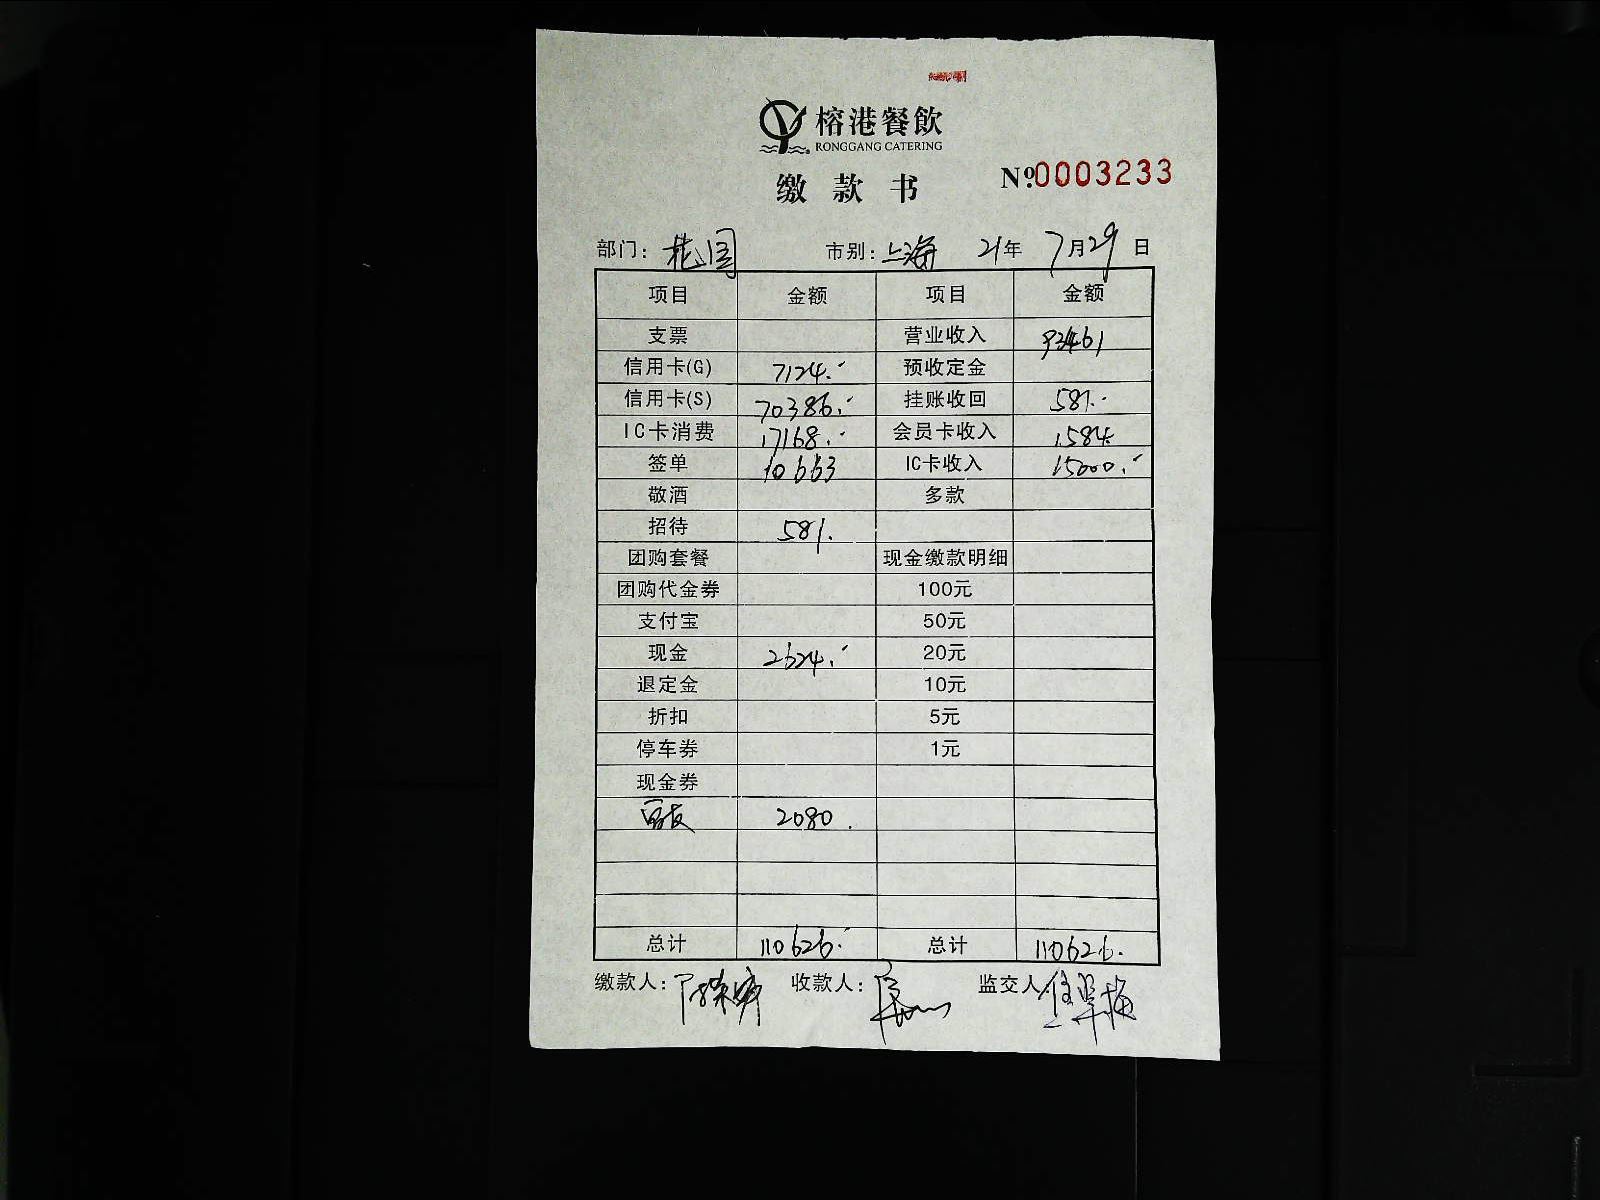 榕港餐飲
RONGGANG CATERING
缴款书 №0003233
部门: 花园 市别: 上海 21年 7月29日
项目 金额 项目 金额
支票 营业收入 93461
信用卡(G) 7124.- 预收定金
信用卡(S) 70386.- 挂账收回 581.-
IC卡消费 17168.- 会员卡收入 1584.
签单 10663 IC卡收入 15000.-
敬酒 多款
招待 581.
团购套餐 现金缴款明细
团购代金券 100元
支付宝 50元
现金 2624.- 20元
退定金 10元
折扣 5元
停车券 1元
现金券
2080.
总计 110626.- 总计 110626.
缴款人: 收款人: 监交人: 任翠梅